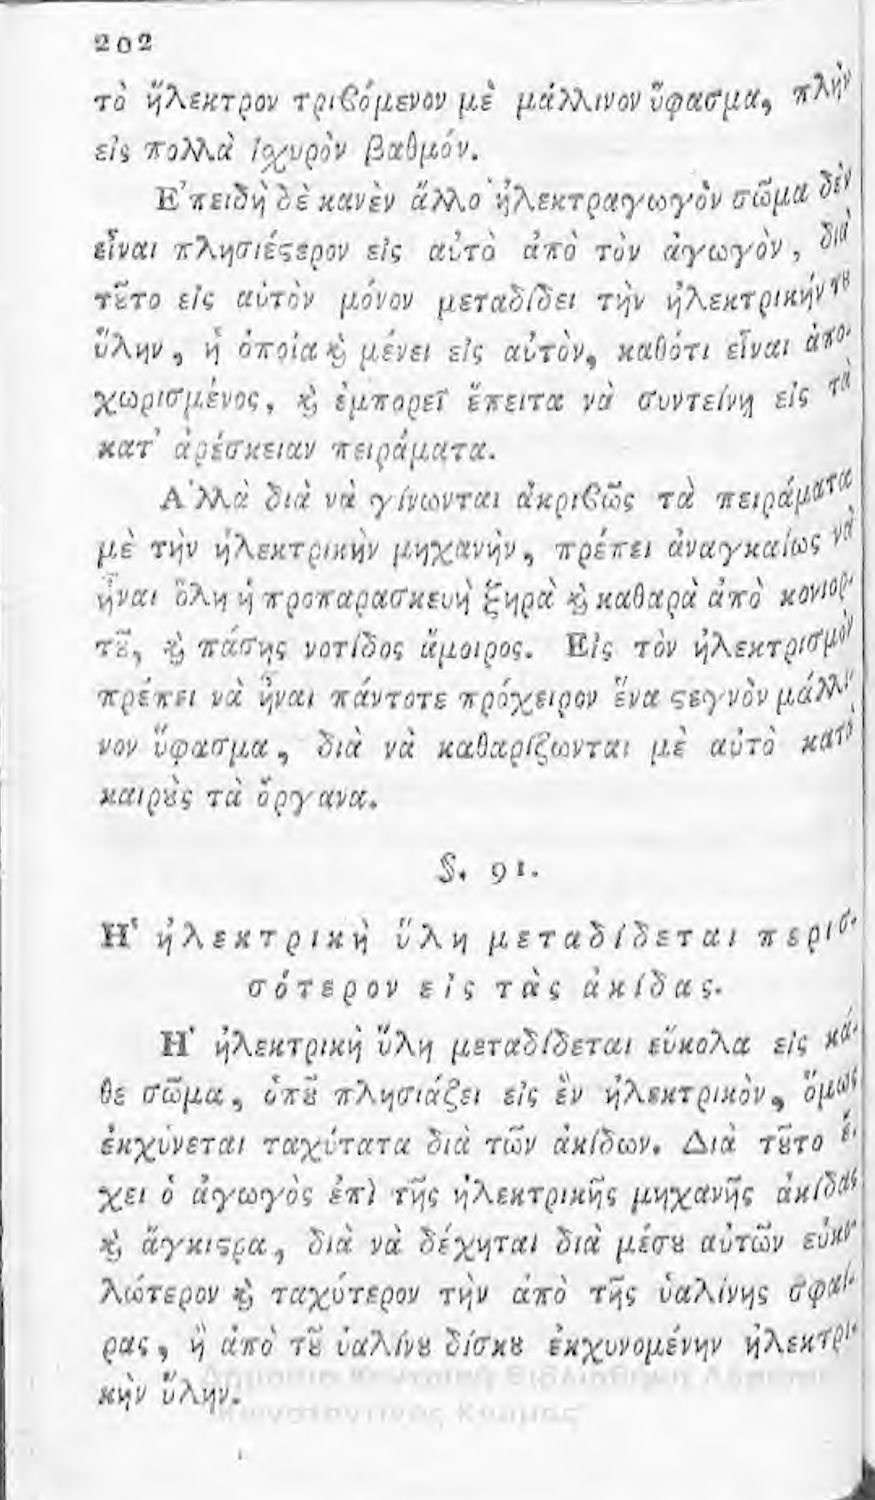 202
τὸ ἤλεκτρον τριβόμενον μὲ μάλλινον ὕφασμα, πλὴν
εἰς πολλὰ ἰσχυρὸν βαθμόν.
Ἐπειδὴ δὲ κανὲν ἄλλο ἠλεκτραγωγὸν σῶμα δὲν
εἶναι πλησιέϛερον εἰς αὐτὸ ἀπὸ τὸν ἀγωγὸν, διὰ
τȣ͂το εἰς αὐτὸν μόνον μεταδίδει τὴν ἠλεκτρικήν τȣ
ὕλην, ἡ ὁποία ϗ̀ μένει εἰς αὐτὸν, καθότι εἶναι ἀπο-
χωρισμένος, ϗ̀ ἐμπορεῖ ἔπειτα νὰ συντείνῃ εἰς τὰ
κατ' ἀρέσκειαν πειράματα.
Ἀλλὰ διὰ νὰ γίνωνται ἀκριβῶς τὰ πειράματα
μὲ τὴν ἠλεκτρικὴν μηχανὴν, πρέπει ἀναγκαίως νὰ
ἦναι ὅλη ἡ προπαρασκευὴ ξηρὰ ϗ̀ καθαρὰ ἀπὸ κονιορ-
τȣ͂, ϗ̀ πάσης νοτίδος ἄμοιρος. Εἰς τὸν ἠλεκτρισμὸν
πρέπει νὰ ἦναι πάντοτε πρόχειρον ἕνα ϛεγνὸν μάλλι-
νον ὕφασμα, διὰ νὰ καθαρίζωνται μὲ αὐτὸ κατὰ
καιρȣ̀ς τὰ ὄργανα.
§. 91.
Ἡ ἠλεκτρικὴ ὕλη μεταδίδεται περισ-
σότερον εἰς τὰς ἀκίδας.
Ἡ ἠλεκτρικὴ ὕλη μεταδίδεται εὔκολα εἰς κά-
θε σῶμα, ὁπȣ̃ πλησιάζει εἰς ἓν ἠλεκτρικὸν, ὅμως
ἐκχύνεται ταχύτατα διὰ τῶν ἀκίδων. Διὰ τȣ͂το ἔ-
χει ὁ ἀγωγὸς ἐπὶ τῆς ἠλεκτρικῆς μηχανῆς ἀκίδας
ϗ̀ ἄγκιϛρα, διὰ νὰ δέχηται διὰ μέσȣ αὐτῶν εὐκο-
λώτερον ϗ̀ ταχύτερον τὴν ἀπὸ τῆς ὑαλίνης σφαί-
ρας, ἢ ἀπὸ τȣ͂ ὑαλίνȣ δίσκȣ ἐκχυνομένην ἠλεκτρι-
κὴν ὕλην.
Δημόσια Κεντρική Βιβλιοθήκη
Κωνσταντίνος Κούμας